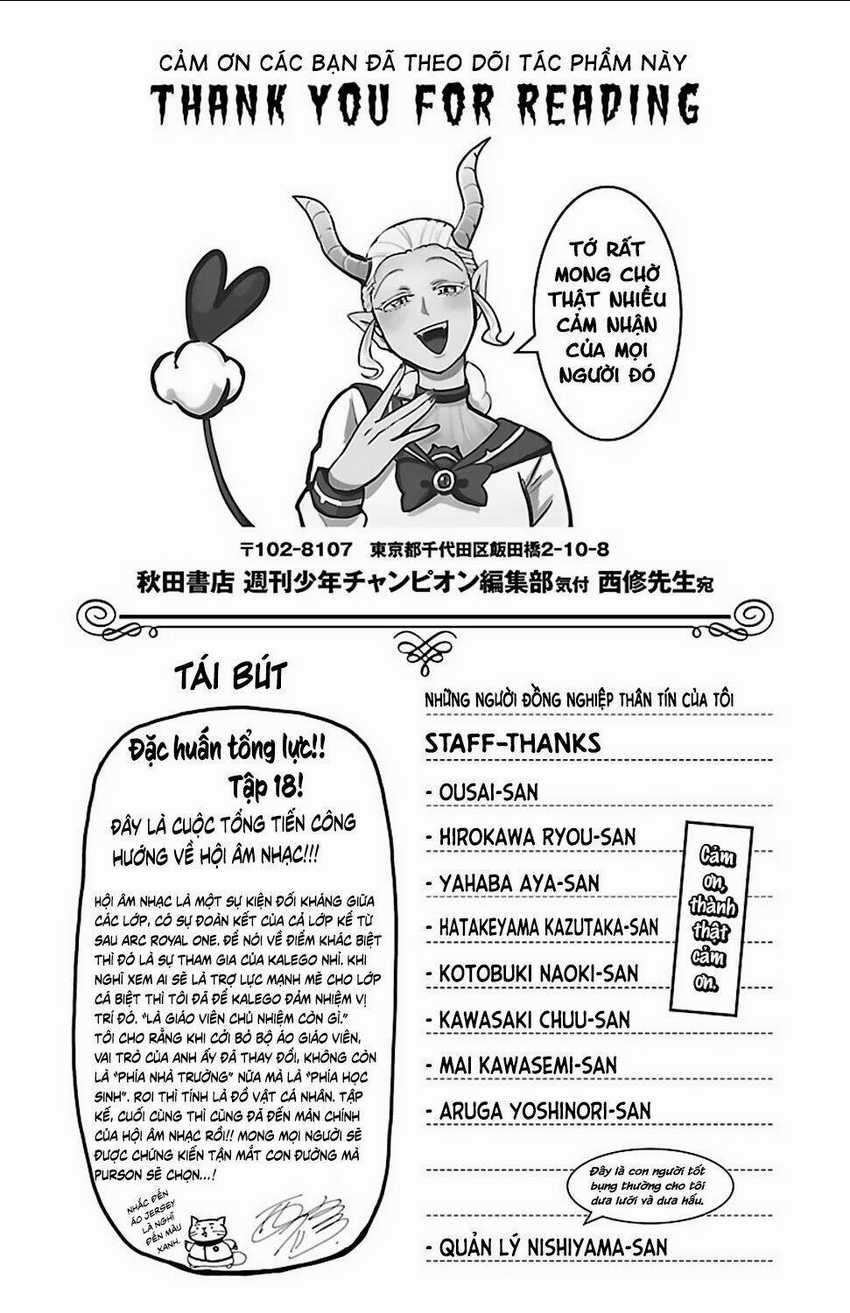 CẢM ƠN CÁC BẠN ĐÃ THEO DÕI TÁC PHẨM NÀY
THANK YOU FOR READING
TỚ RẤT
MONG CHỜ
THẬT NHIỀU
CẢM NHẬN
CỦA MỌI
NGƯỜI ĐÓ
〒102-8107 東京都千代田区飯田橋2-10-8
秋田書店 週刊少年チャンピオン編集部気付 西修先生宛
TÁI BÚT
Đặc huấn tổng lực!!
Tập 18!
ĐÂY LÀ CUỘC TỔNG TIẾN CÔNG
HƯỚNG VỀ HỘI ÂM NHẠC!!!
HỘI ÂM NHẠC LÀ MỘT SỰ KIỆN ĐỐI KHÁNG GIỮA
CÁC LỚP, CÓ SỰ ĐOÀN KẾT CỦA CẢ LỚP KỂ TỪ
SAU ARC ROYAL ONE. ĐỂ NÓI VỀ ĐIỂM KHÁC BIỆT
THÌ ĐÓ LÀ SỰ THAM GIA CỦA KALEGO NHỈ. KHI
NGHĨ XEM AI SẼ LÀ TRỢ LỰC MẠNH MẼ CHO LỚP
CÁ BIỆT THÌ TÔI ĐÃ ĐỂ KALEGO ĐẢM NHIỆM VỊ
TRÍ ĐÓ. "LÀ GIÁO VIÊN CHỦ NHIỆM CÒN GÌ."
TÔI CHO RẰNG KHI CỞI BỎ BỘ ÁO GIÁO VIÊN,
VAI TRÒ CỦA ANH ẤY ĐÃ THAY ĐỔI, KHÔNG CÒN
LÀ "PHÍA NHÀ TRƯỜNG" NỮA MÀ LÀ "PHÍA HỌC
SINH". ROI THÌ TÍNH LÀ ĐỒ VẬT CÁ NHÂN. TẬP
KẾ, CUỐI CÙNG THÌ CŨNG ĐÃ ĐẾN MÀN CHÍNH
CỦA HỘI ÂM NHẠC RỒI!! MONG MỌI NGƯỜI SẼ
ĐƯỢC CHỨNG KIẾN TẬN MẮT CON ĐƯỜNG MÀ
PURSON SẼ CHỌN...!
NHẮC ĐẾN
ÁO JERSEY
LÀ NGHĨ
ĐẾN MÀU
XANH.
NHỮNG NGƯỜI ĐỒNG NGHIỆP THÂN TÍN CỦA TÔI
STAFF-THANKS
- OUSAI-SAN
- HIROKAWA RYOU-SAN
- YAHABA AYA-SAN
- HATAKEYAMA KAZUTAKA-SAN
- KOTOBUKI NAOKI-SAN
- KAWASAKI CHUU-SAN
- MAI KAWASEMI-SAN
- ARUGA YOSHINORI-SAN
Cảm
ơn,
thành
thật
cảm
ơn.
Đây là con người tốt
bụng thường cho tôi
dưa lưới và dưa hấu.
- QUẢN LÝ NISHIYAMA-SAN